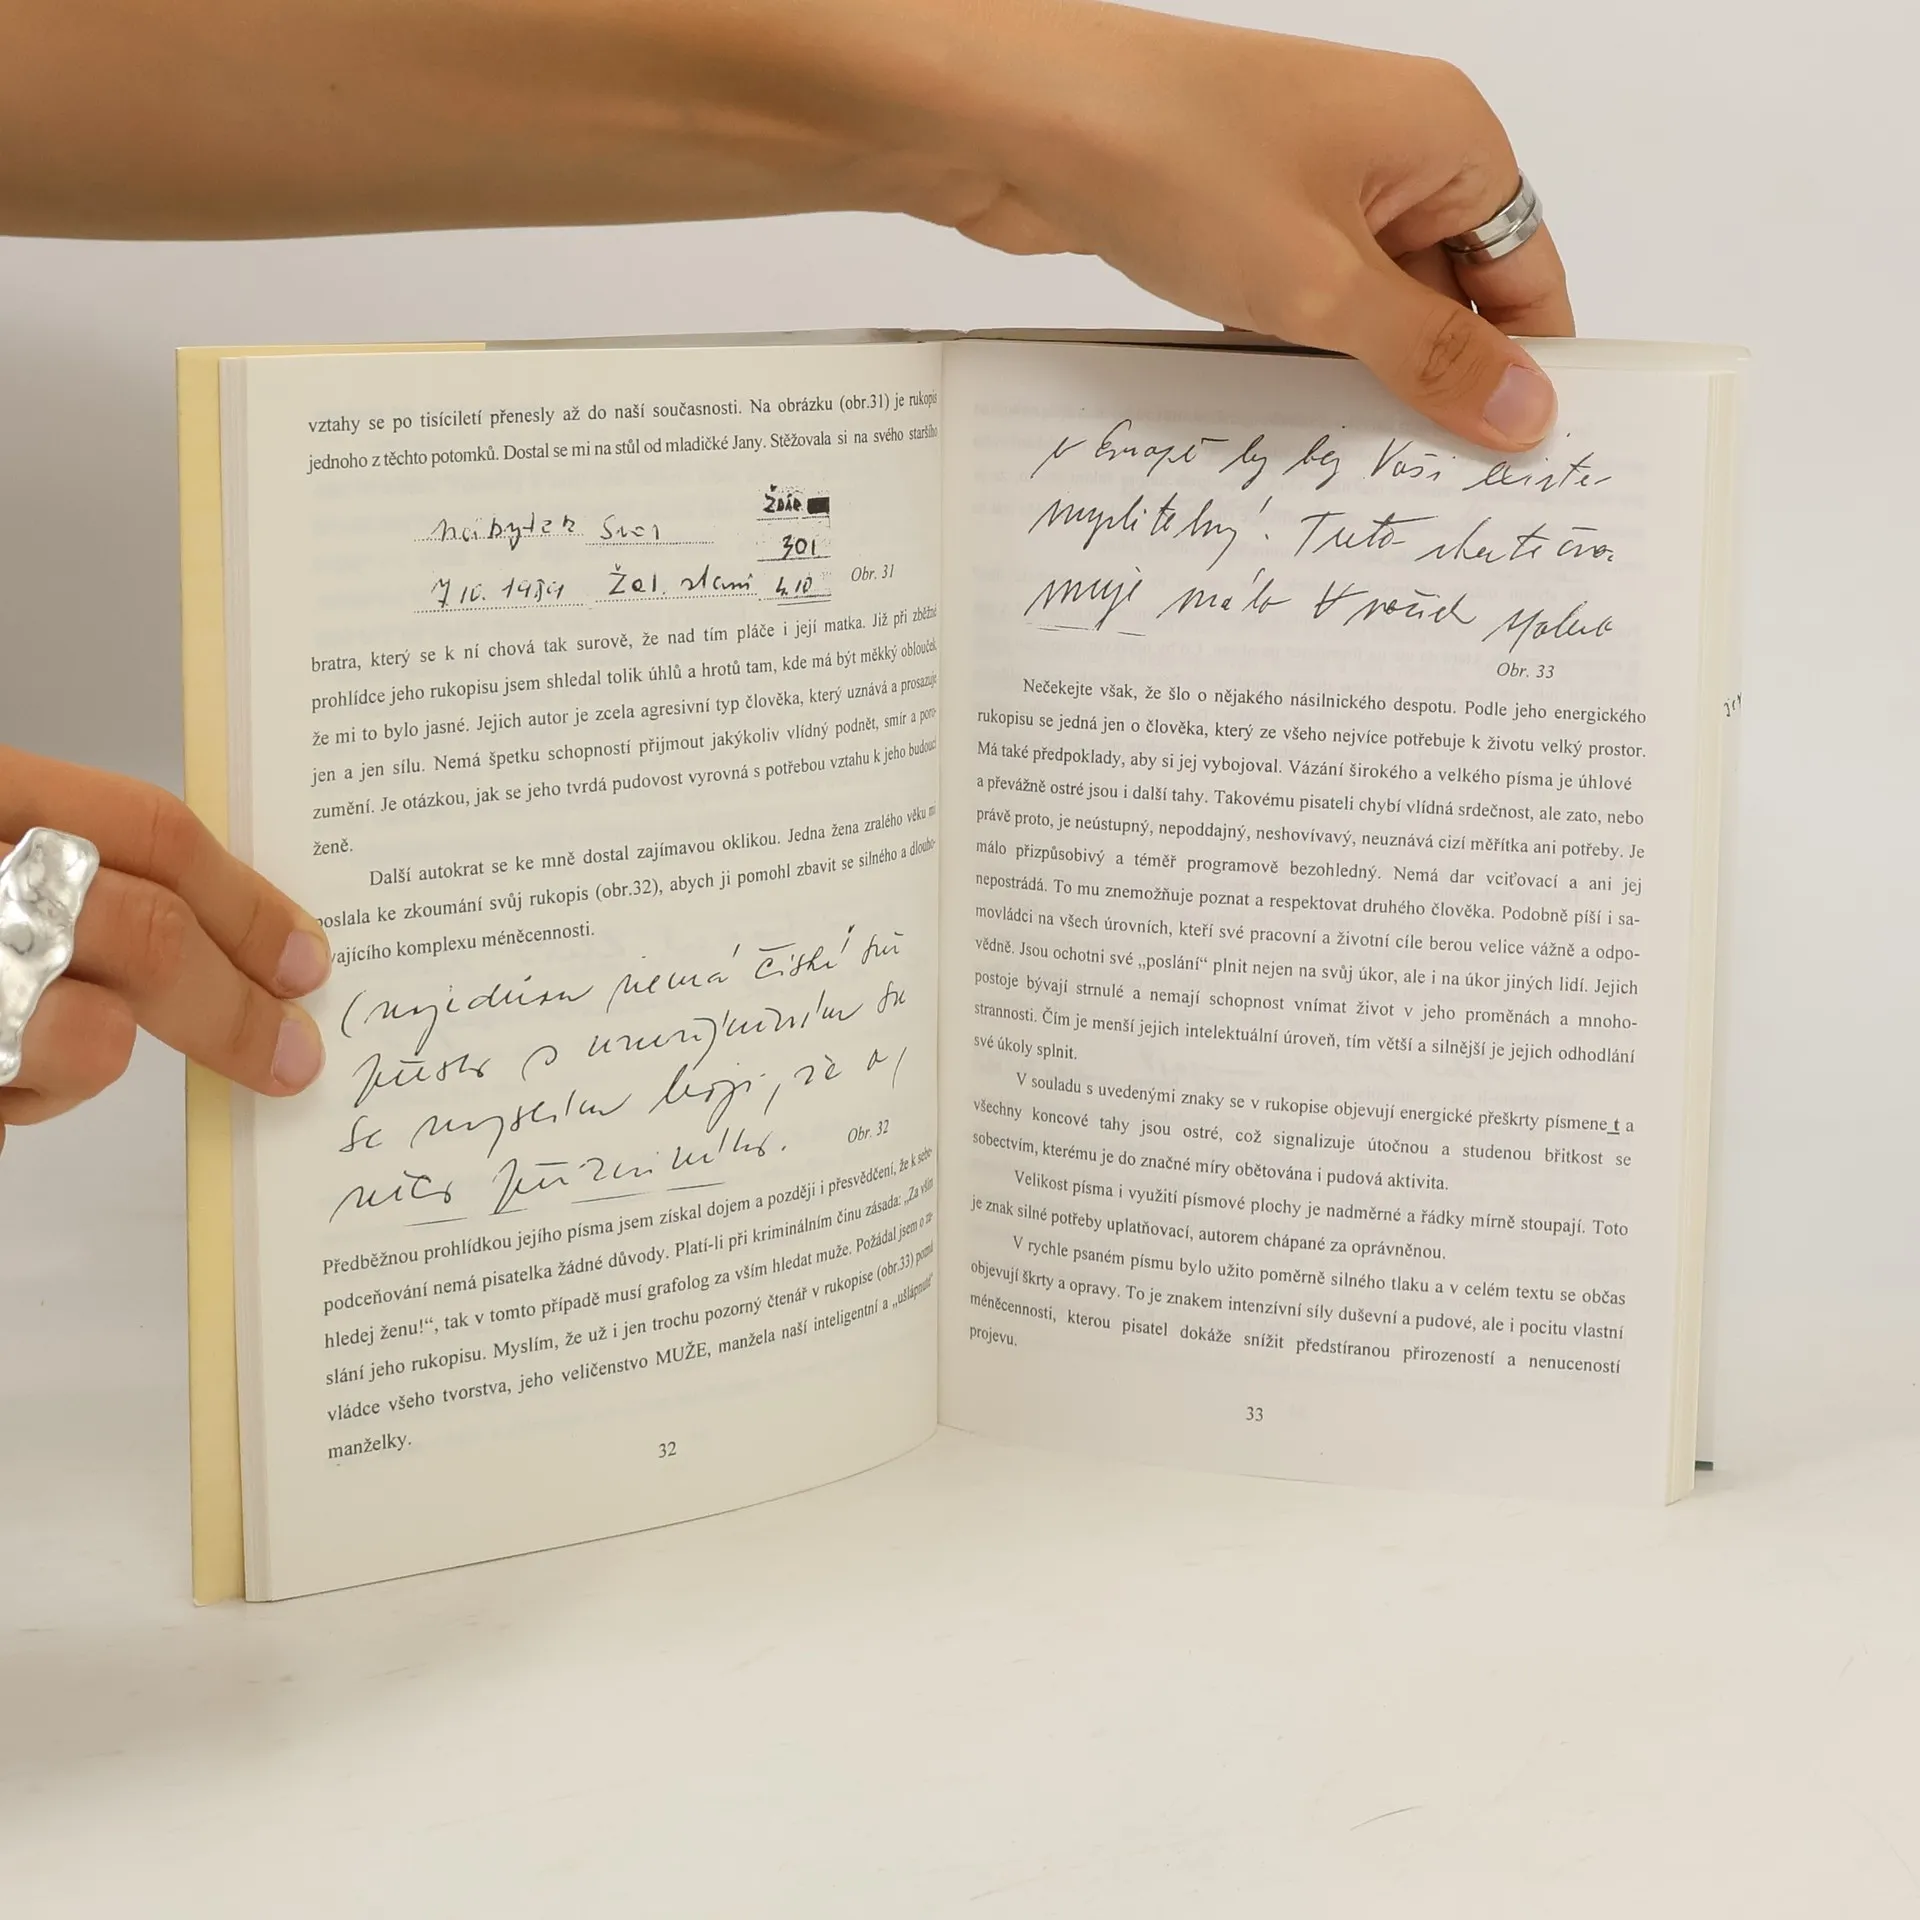 vztahy se po tisíciletí přenesly až do naší současnosti. Na obrázku (obr.31) je rukopis
jednoho z těchto potomků. Dostal se mi na stůl od mladičké Jany. Stěžovala si na svého staršího
ŽDÁR
301
7 10. 1989 Žel. 4.10
Obr. 31
bratra, který se k ní chová tak surově, že nad tím pláče i její matka. Již při zběžné
prohlídce jeho rukopisu jsem shledal tolik úhlů a hrotů tam, kde má být měkký oblouček,
že mi to bylo jasné. Jejich autor je zcela agresivní typ člověka, který uznává a prosazuje
jen a jen sílu. Nemá špetku schopností přijmout jakýkoliv vlídný podnět, smír a poro-
zumění. Je otázkou, jak se jeho tvrdá pudovost vyrovná s potřebou vztahu k jeho budoucí
ženě.
Další autokrat se ke mně dostal zajímavou oklikou. Jedna žena zralého věku mi
poslala ke zkoumání svůj rukopis (obr.32), abych ji pomohl zbavit se silného a dlouho-
vajícího komplexu méněcennosti.
nemá
se myslím bojí, že
něco
Obr. 32
Předběžnou prohlídkou jejího písma jsem získal dojem a později i přesvědčení, že k sebe-
podceňování nemá pisatelka žádné důvody. Platí-li při kriminálním činu zásada: „Za vším
hledej ženu!“, tak v tomto případě musí grafolog za vším hledat muže. Požádal jsem o za-
slání jeho rukopisu. Myslím, že už i jen trochu pozorný čtenář v rukopise (obr.33) pozná
vládce všeho tvorstva, jeho veličenstvo MUŽE, manžela naší inteligentní a „ušlápnuté“
manželky.
32
v Evropě by bez Vaší existe-
myslitelný!
málo
Obr. 33
Nečekejte však, že šlo o nějakého násilnického despotu. Podle jeho energického
rukopisu se jedná jen o člověka, který ze všeho nejvíce potřebuje k životu velký prostor.
Má také předpoklady, aby si jej vybojoval. Vázání širokého a velkého písma je úhlové
a převážně ostré jsou i další tahy. Takovému pisateli chybí vlídná srdečnost, ale zato, nebo
právě proto, je neústupný, nepoddajný, neshovívavý, neuznává cizí měřítka ani potřeby. Je
málo přizpůsobivý a téměř programově bezohledný. Nemá dar vciťovací a ani jej
nepostrádá. To mu znemožňuje poznat a respektovat druhého člověka. Podobně píší i sa-
movládci na všech úrovních, kteří své pracovní a životní cíle berou velice vážně a odpo-
vědně. Jsou ochotni své „poslání“ plnit nejen na svůj úkor, ale i na úkor jiných lidí. Jejich
postoje bývají strnulé a nemají schopnost vnímat život v jeho proměnách a mnoho-
strannosti. Čím je menší jejich intelektuální úroveň, tím větší a silnější je jejich odhodlání
své úkoly splnit.
V souladu s uvedenými znaky se v rukopise objevují energické přeškrty písmene t a
všechny koncové tahy jsou ostré, což signalizuje útočnou a studenou břitkost se
sobectvím, kterému je do značné míry obětována i pudová aktivita.
Velikost písma i využití písmové plochy je nadměrné a řádky mírně stoupají. Toto
je znak silné potřeby uplatňovací, autorem chápané za oprávněnou.
V rychle psaném písmu bylo užito poměrně silného tlaku a v celém textu se občas
objevují škrty a opravy. To je znakem intenzívní síly duševní a pudové, ale i pocitu vlastní
méněcennosti, kterou pisatel dokáže snížit předstíranou přirozeností a nenuceností
projevu.
33